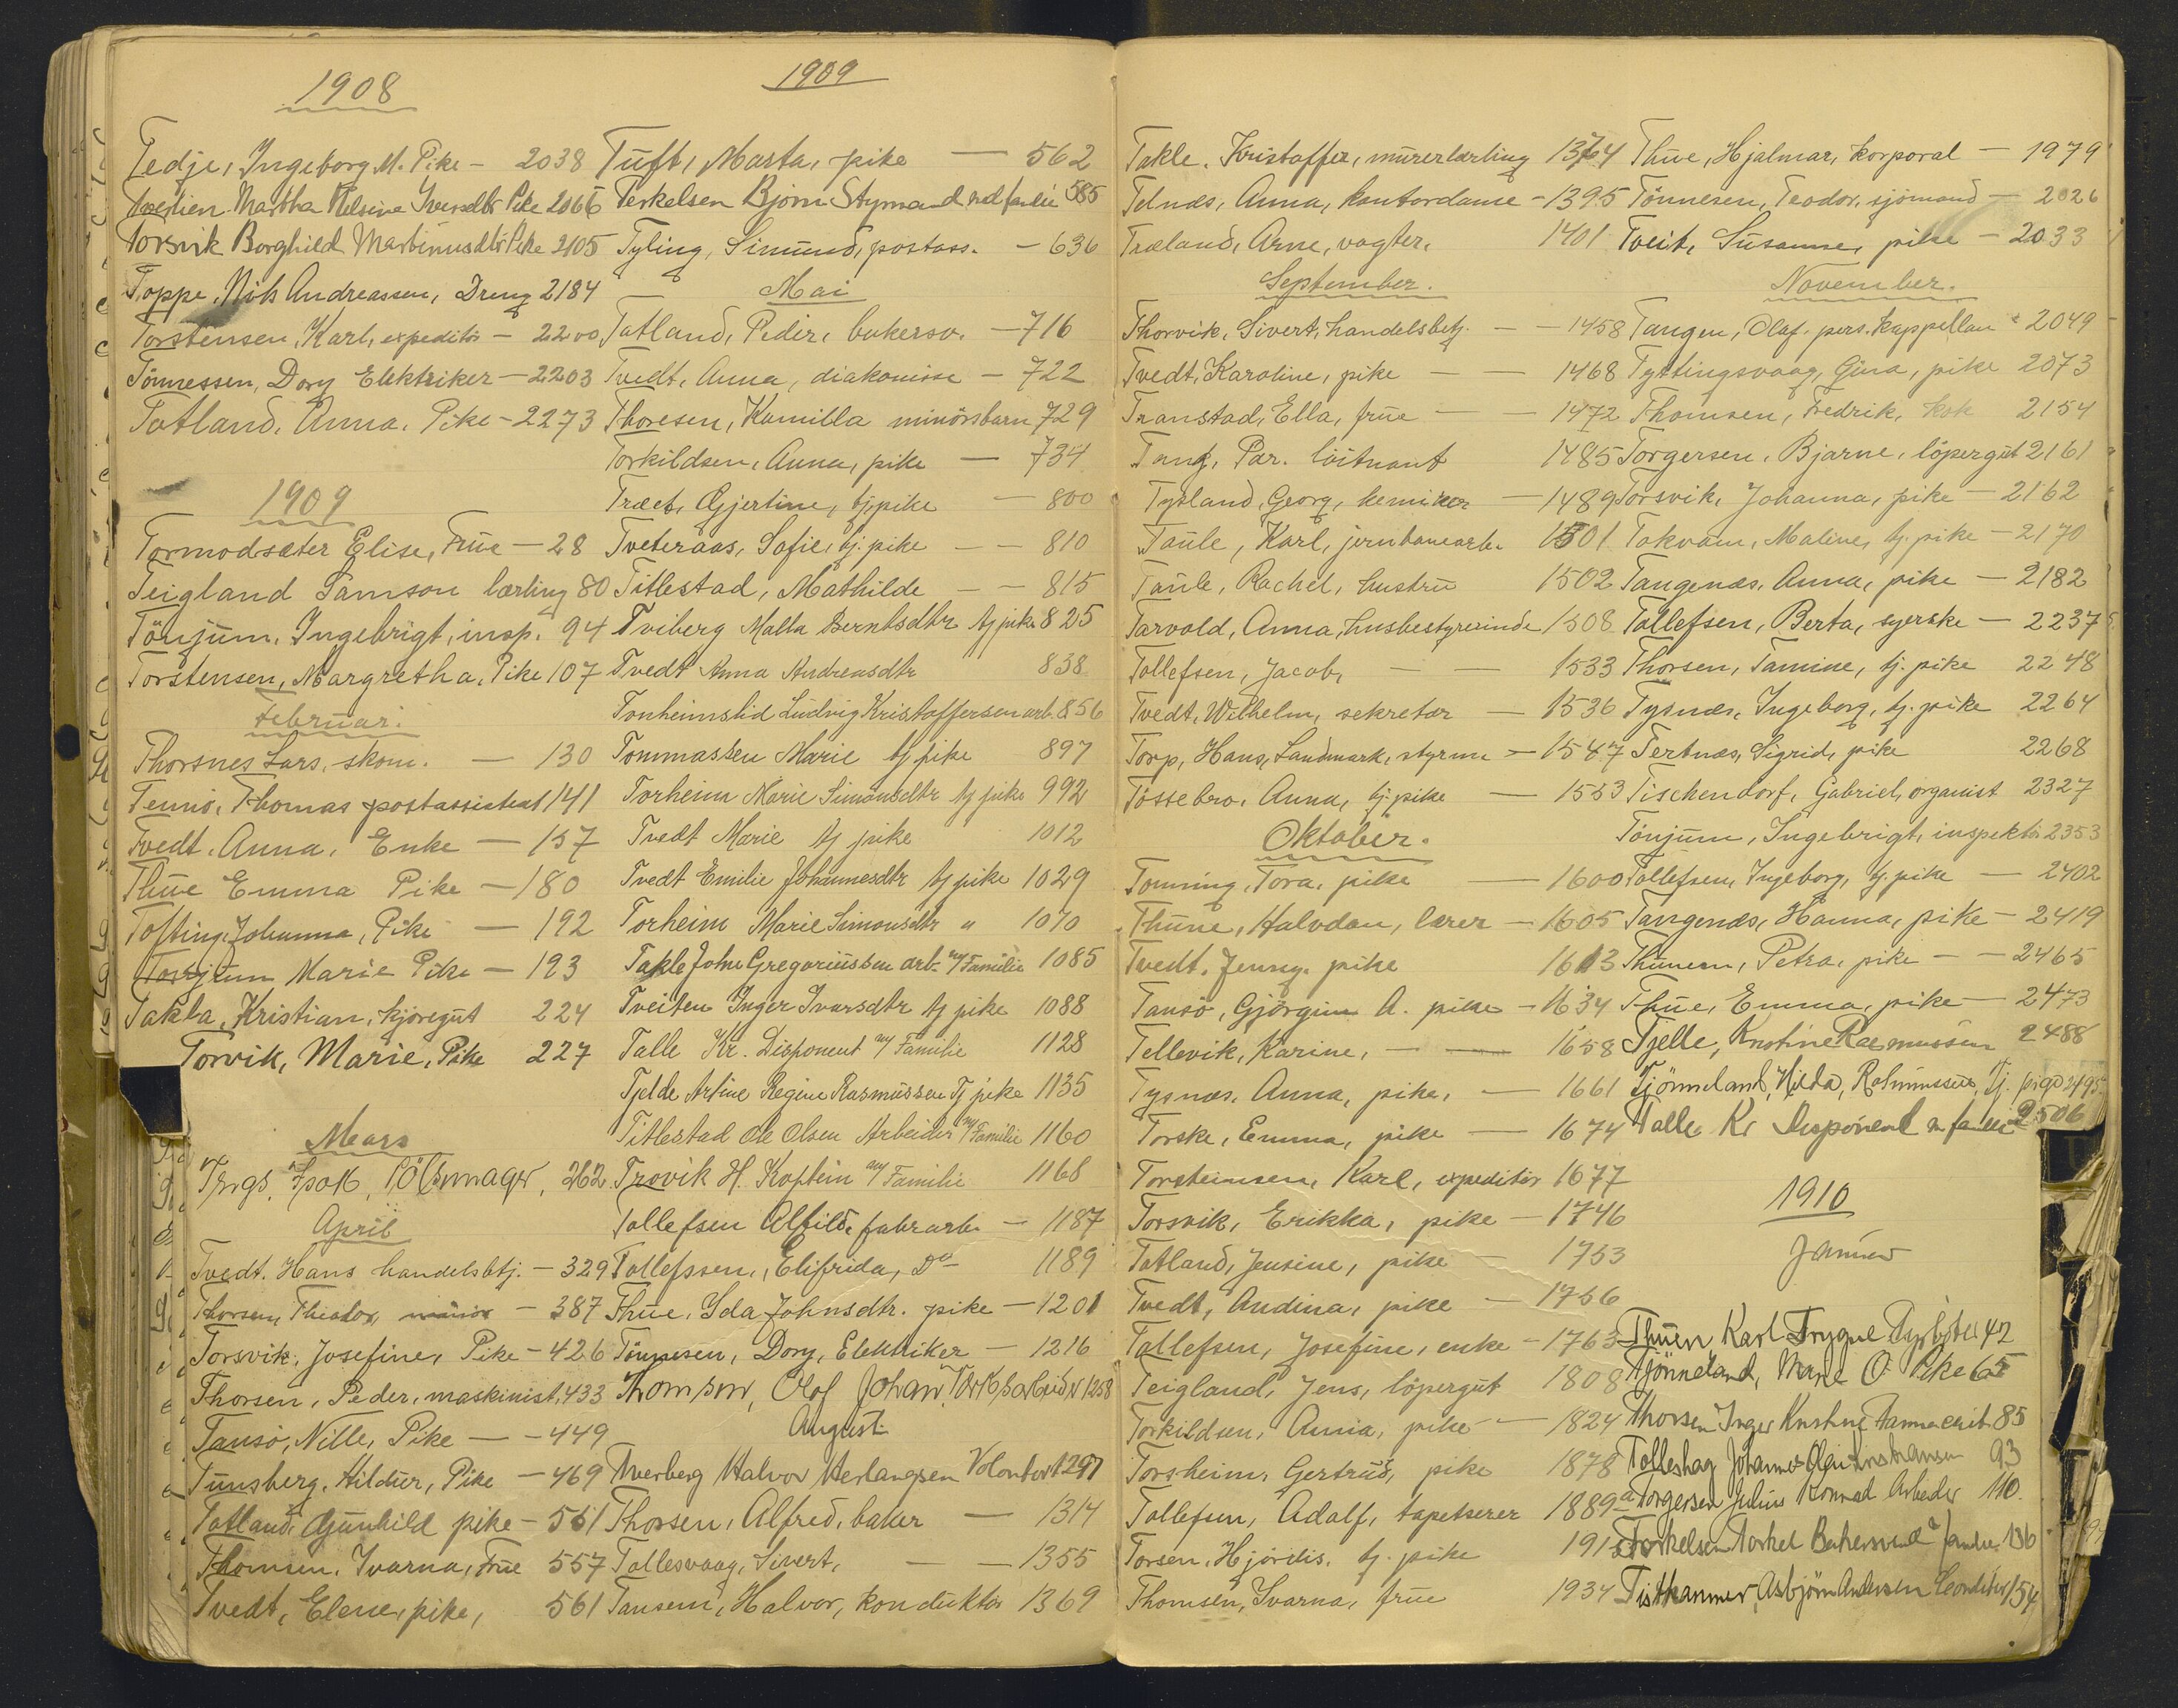 1908
Tedje, Ingeborg M. Pike - 2038
Tveitien Martha Nelsine Iversdtr Pike 2066
Torsvik Borghild Martinusdtr Pike 2105
Toppe, Nils Andreassen, Dreng 2184
Torstensen, Karl, expeditör - 2200
Tönnessen, Dory Elektriker - 2203
Totland, Anna, Pike - 2273
1909
Tormodsæter Elise, Frue - 28
Teigland Samson lærling 80
Tönjum, Ingebrigt, insp. 94
Torstensen, Margretha, Pike 107
Februar.
Thorsnes Lars, skom. - 130
Tennö, Thomas postassistent 141
Tvedt, Anna, Enke - 157
Thue Emma Pike - 180
Tofting Johanna, Pike - 192
Marie Pike - 193
Takla, Kristian, kjöregut 224
Torvik, Marie, Pike 227
Mars
Isak, Pölsemager, 262
April
Tvedt, Hans handelsbtj. - 329
Thorsen, Theodor, minör - 387
Torsvik, Josefine, Pike - 426
Thorsen, Peder, maskinist, 433
Tausö, Nille, Pike - 449
Tunsberg, Hildur, Pike - 469
Totland, Gunhild pike - 551
Thomsen, Ivarna, Frue 557
Tvedt, Elene, pike, 561
1909
Tuft, Marta, pike - 562
Terkelsen Bjorn Styrmand med familie 585
Tyling, Simund, postass. - 636
Mai
Totland, Peder, bakersv. - 716
Tvedt, Anna, diakonisse - 722
Thoresen, Kamilla minörsbarn 729
Torkildsen, Anna, pike - 734
Træet, Gjertine, tj. pike - 800
Tveteraas, Sofie, tj. pike - 810
Titlestad, Mathilde - 815
Tviberg Malla Berntsdtr tj pike 825
Tvedt Anna Andreasdtr 838
Tonheimslid Ludvig Kristoffersen arb. 856
Tommassen Marie tj pike 897
Torheim Marie Simonsdtr tj pike 992
Tvedt Marie tj pike 1012
Tvedt Emilie Johannesdtr tj pike 1029
Torheim Marie Simonsdtr " 1070
Takle John Gregoriussen arb. m/Familie 1085
Tveiten Inger Ivarsdtr tj pike 1088
Talle Kr. Disponent m/Familie 1128
Tjelde Artine Regine Rasmussen Tj pike 1135
Titlestad Ole Olsen Arbeider m/Familie 1160
Trovik H. Kaptein m/Familie 1168
Tollefsen Alfild, fabrarb. - 1187
Tollefssen, Elifrida, Do 1189
Thue, Ida Johnsdtr. pike - 1201
Tönnesen, Dory, Elektriker - 1216
Thomsen, Olof Johan, 1258
August
Halvor Herlaugsen Volontör 1297
Thorsen, Alfred, baker - 1314
Tollesvaag, Sivert, - 1355
Tansem, Halvor, konduktör 1369
Takle, Kristoffer, murerlærling 1374
Telnæs, Anna, kontordame - 1395
Træland, Arne, vagter, 1401
September.
Thorvik, Sivert, handelsbetj. - 1458
Tvedt, Karoline, pike - 1468
Transtad, Ella, frue - 1472
Tang, Par. löitnant 1485
Tysland, Georg, kemiker - 1489
Taule, Karl, jernbanearb. 1501
Taule, Rachel, hustru 1502
Tarvold, Anna, husbestyrerinde 1508
Tollefsen, Jacob, - 1533
Tvedt, Wilhelm, sekretær - 1536
Torp, Hans, Landmark, styrm - 1547
Tössebro, Anna, tj. pike - 1553
Oktober.
Tomning, Tora, pike - 1600
Thune, Halvdan, lærer - 1605
Tvedt, Jenny, pike 1613
Tausö, Gjörgine A. pike - 1634
Tellevik, Karine, - 1658
Tysnæs, Anna, pike, - 1661
Torske, Emma, pike - 1674
Torsteinsen, Karl, expeditör 1677
Torsvik, Erikka, pike - 1746
Totland, Jensine, pike - 1753
Tvedt, Andina, pike - 1756
Tollefsen, Josefine, enke - 1763
Teigland, Jens, löpergut 1808
Torkildsen, Anna, pike - 1824
Torsheim, Gertrud, pike 1878
Tollefsen, Adolf, tapetserer 1889a
Torsen, Hjördis, tj. pike 191
Thomsen, Ivarna, frue 1934
Thue, Hjalmar, korporal - 1979
Tönnesen, Teodor, sjömand - 2026
Tveit, Susanne, pike - 2033
November.
Tangen, Olaf, pers. kappellan - 2049
Tyttingsvaag, Gina, pike 2073
Thomsen, Fredrik, kok 2154
Torgersen, Bjarne, löpergut 2161
Torsvik, Johanna, pike - 2162
Tokvam, Maline, tj. pike - 2170
Tangenæs, Anna, pike - 2182
Tollefsen, Berta, syerske - 2237
Thorsen, Tamine, tj. pike 2248
Tysnæs, Ingeborg, tj. pike 2264
Tertnæs, Sigrid, pike 2268
Tischendorf, Gabriel, organist 2327
Tönjum, Ingebrigt, inspektör 2353
Tollefsen, Ingeborg, tj. pike - 2402
Tangenæs, Hanna, pike - 2419
Petra, pike - 2465
Thue, Emma, pike - 2473
Tjelle, Kristine Rasmussen 2488
Tjönneland, Hilda, Rasmussen, Tj. pige 2495
Talle Kr Disponent m familie 2506
1910
Januar
Thuen Karl Trygve 42
Tjönneland, Marie O. Pike 65
Thorsen Inger Kristine 85
Johannes 93
Torgersen Julius Konrad Arbeider 110.
Torkelsen Torkel Bakersvend m/ familie 136
Tisthammer, Asbjörn Andersen 154